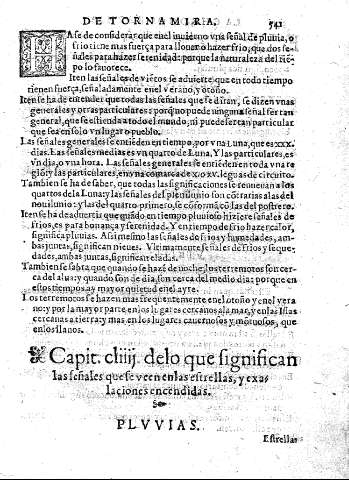 DE TORNAMIRA. 541
HA se de considerar que en el inuierno vna señal de pluuia, o
frio tiene mas fuerça para llouer o hazer frio, que dos señales
para hazer serenidad: porque la naturaleza del tiẽpo
lo fauorece.
Iten las señales de viẽtos se aduierte que en todo tiempo
tienen fuerça, señaladamente en el verano, y otoño.
Iten se ha de entender que todas las señales que se diran, se dizen vnas
generales y otras particulares: porq̃ no puede ninguna señal ser tan
general, que se estienda a todo el mundo, ni puede ser tan particular
que sea en solo vn lugar o pueblo.
Las señales generales se entiẽden en tiempo, por vna Luna, que es xxx.
dias. Las señales medias es vn quarto de Luna. Y las particulares, es
vn dia, o vna hora. Las señales generales se entiẽden en toda vna regiõ
y las particulares, en vna comarca de x. o xv. leguas de circuito.
Tambien se ha de saber, que todas las significaciones se renueuan a los
quartos de la Luna: y las señales del plenilunio son cõtrarias a las del
nouilunio: y las del quarto primero, se cõforman cõ las del postrero.
Iten se ha de aduertir que quãdo en tiempo pluuioso hiziere señales de
frios, es para bonança y serenidad. Y en tiempo de frio hazer calor,
significa pluuias. Assi mesmo las señales de frios y humedades, ambas
juntas, significan nieues. Vltimamente señales de frios y sequedades,
ambas juntas, significan eladas.
Tambien se sabra que quando se hazẽ de noche los terremotos son cerca
del alua: y quando son de dia, son cerca del medio dia: porque en
estos tiempos ay mayor quietud en el ayre.
Los terremotos se hazen mas frequentemente en el otoño y en el verano:
y por la mayor parte, en los lugares cercanos a la mar, y en las Islas
cercanas a tierra: y mas en los lugares cauernosos y mõtuosos, que
en los llanos.
Capit. cliiij. de lo que significan
las señales que se veen en las estrellas, y exalaciones
encendidas.
PLVVIAS.
Estrellas